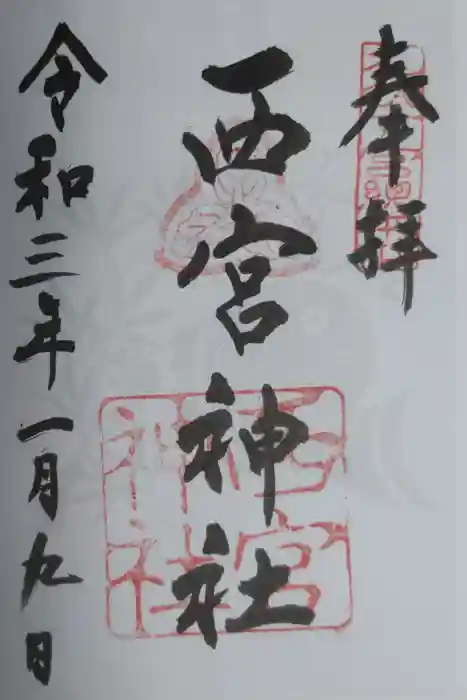 奉拝
西宮神社
西宮神社
令和三年一月九日